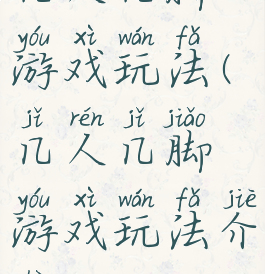 yóu xì wán fǎ
游戏玩法(
jǐ rén jǐ jiǎo
几人几脚
yóu xì wán fǎ jiè
游戏玩法介